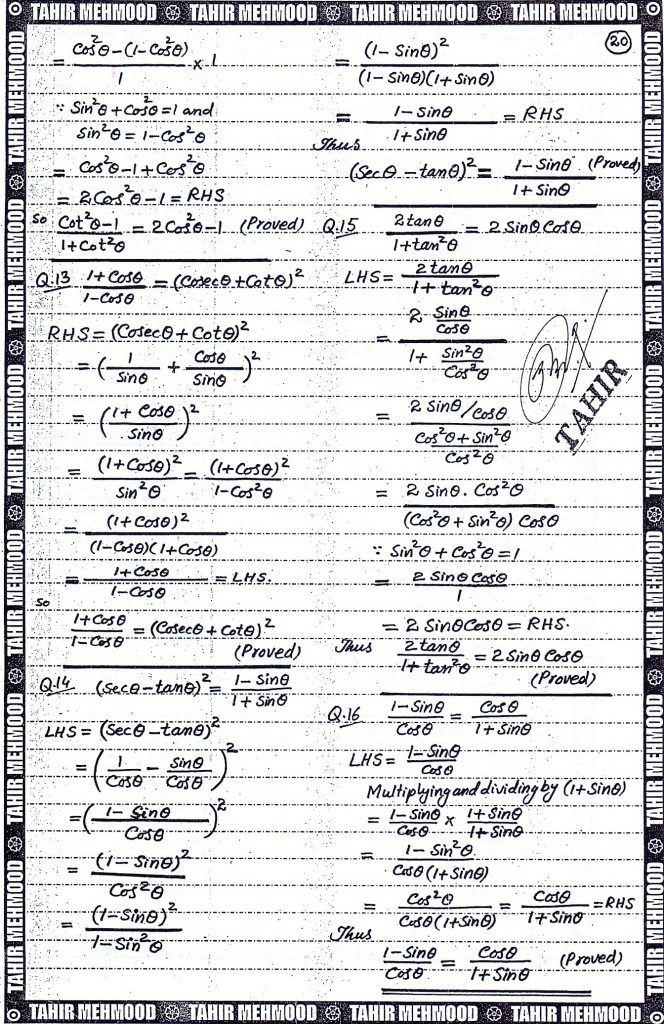 TAHIR MEHMOOD TAHIR MEHMOOD TAHIR MEHMOOD TAHIR MEHMOOD
20
= Cos²θ-(1-Cos²θ)/1 × 1
∵ Sin²θ+Cos²θ=1 and
Sin²θ = 1-Cos²θ
= Cos²θ-1+Cos²θ
= 2Cos²θ-1 = RHS
So Cot²θ-1/1+Cot²θ = 2Cos²θ-1 (Proved)
Q.13 1+Cosθ/1-Cosθ = (Cosecθ+Cotθ)²
RHS = (Cosecθ+Cotθ)²
= (1/Sinθ + Cosθ/Sinθ)²
= (1+Cosθ/Sinθ)²
= (1+Cosθ)²/Sin²θ = (1+Cosθ)²/1-Cos²θ
= (1+Cosθ)²/(1-Cosθ)(1+Cosθ)
= 1+Cosθ/1-Cosθ = LHS.
So
1+Cosθ/1-Cosθ = (Cosecθ+Cotθ)²
(Proved)
Q.14 (Secθ-tanθ)² = 1-Sinθ/1+Sinθ
LHS = (Secθ-tanθ)²
= (1/Cosθ - Sinθ/Cosθ)²
= (1-Sinθ/Cosθ)²
= (1-Sinθ)²/Cos²θ
= (1-Sinθ)²/1-Sin²θ
= (1-Sinθ)²/(1-Sinθ)(1+Sinθ)
= 1-Sinθ/1+Sinθ = RHS
Thus
(Secθ-tanθ)² = 1-Sinθ/1+Sinθ (Proved)
Q.15 2tanθ/1+tan²θ = 2SinθCosθ
LHS = 2tanθ/1+tan²θ
= 2 Sinθ/Cosθ / 1+ Sin²θ/Cos²θ
TAHIR
= 2Sinθ/Cosθ / Cos²θ+Sin²θ/Cos²θ
= 2Sinθ.Cos²θ/(Cos²θ+Sin²θ)Cosθ
∵ Sin²θ+Cos²θ=1
= 2SinθCosθ/1
= 2SinθCosθ = RHS.
Thus 2tanθ/1+tan²θ = 2SinθCosθ
(Proved)
Q.16 1-Sinθ/Cosθ = Cosθ/1+Sinθ
LHS = 1-Sinθ/Cosθ
Multiplying and dividing by (1+Sinθ)
= 1-Sinθ/Cosθ × 1+Sinθ/1+Sinθ
= 1-Sin²θ/Cosθ(1+Sinθ)
= Cos²θ/Cosθ(1+Sinθ) = Cosθ/1+Sinθ = RHS
Thus
1-Sinθ/Cosθ = Cosθ/1+Sinθ (Proved)
TAHIR MEHMOOD TAHIR MEHMOOD TAHIR MEHMOOD TAHIR MEHMOOD
TAHIR MEHMOOD TAHIR MEHMOOD TAHIR MEHMOOD TAHIR MEHMOOD TAHIR MEHMOOD TAHIR MEHMOOD
TAHIR MEHMOOD TAHIR MEHMOOD TAHIR MEHMOOD TAHIR MEHMOOD TAHIR MEHMOOD TAHIR MEHMOOD